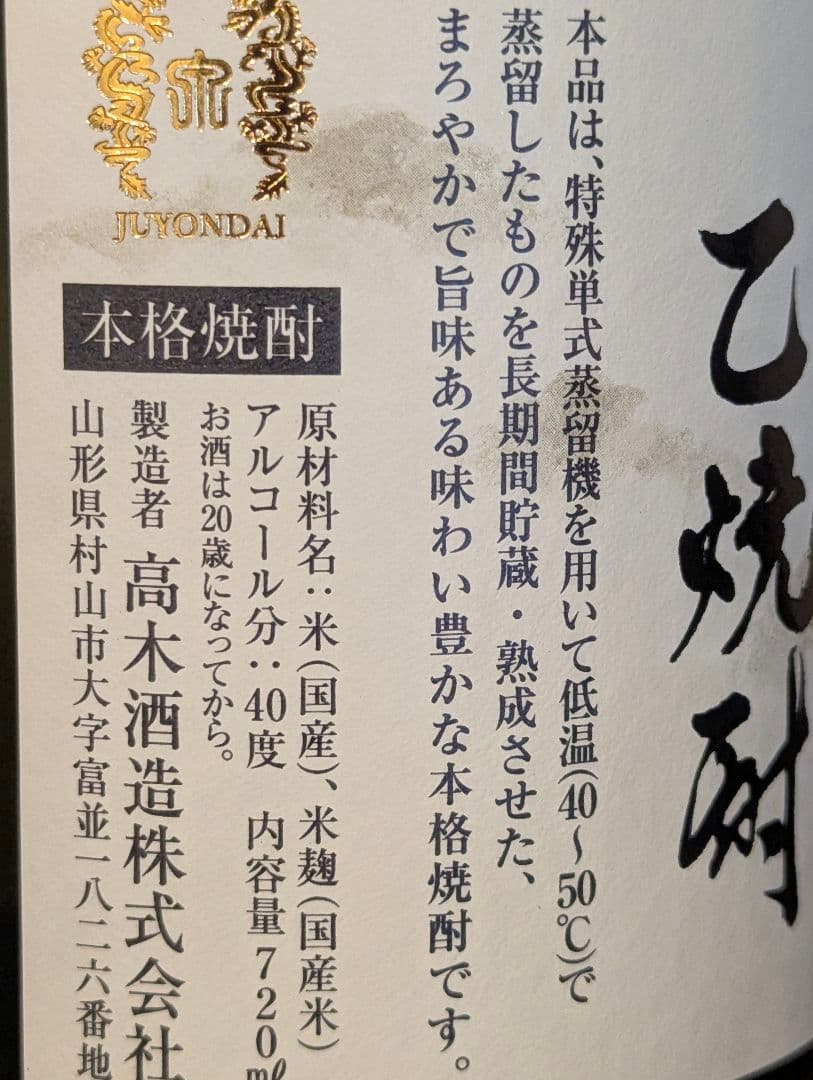 乙焼酎
本品は、特殊単式蒸留機を用いて低温(40〜50℃)で
蒸留したものを長期間貯蔵・熟成させた、
まろやかで旨味ある味わい豊かな本格焼酎です。
JUYONDAI
本格焼酎
原材料名：米(国産)、米麹(国産米)
アルコール分：40度　内容量720ml
お酒は20歳になってから。
製造者 高木酒造株式会社
山形県村山市大字富並一八二六番地